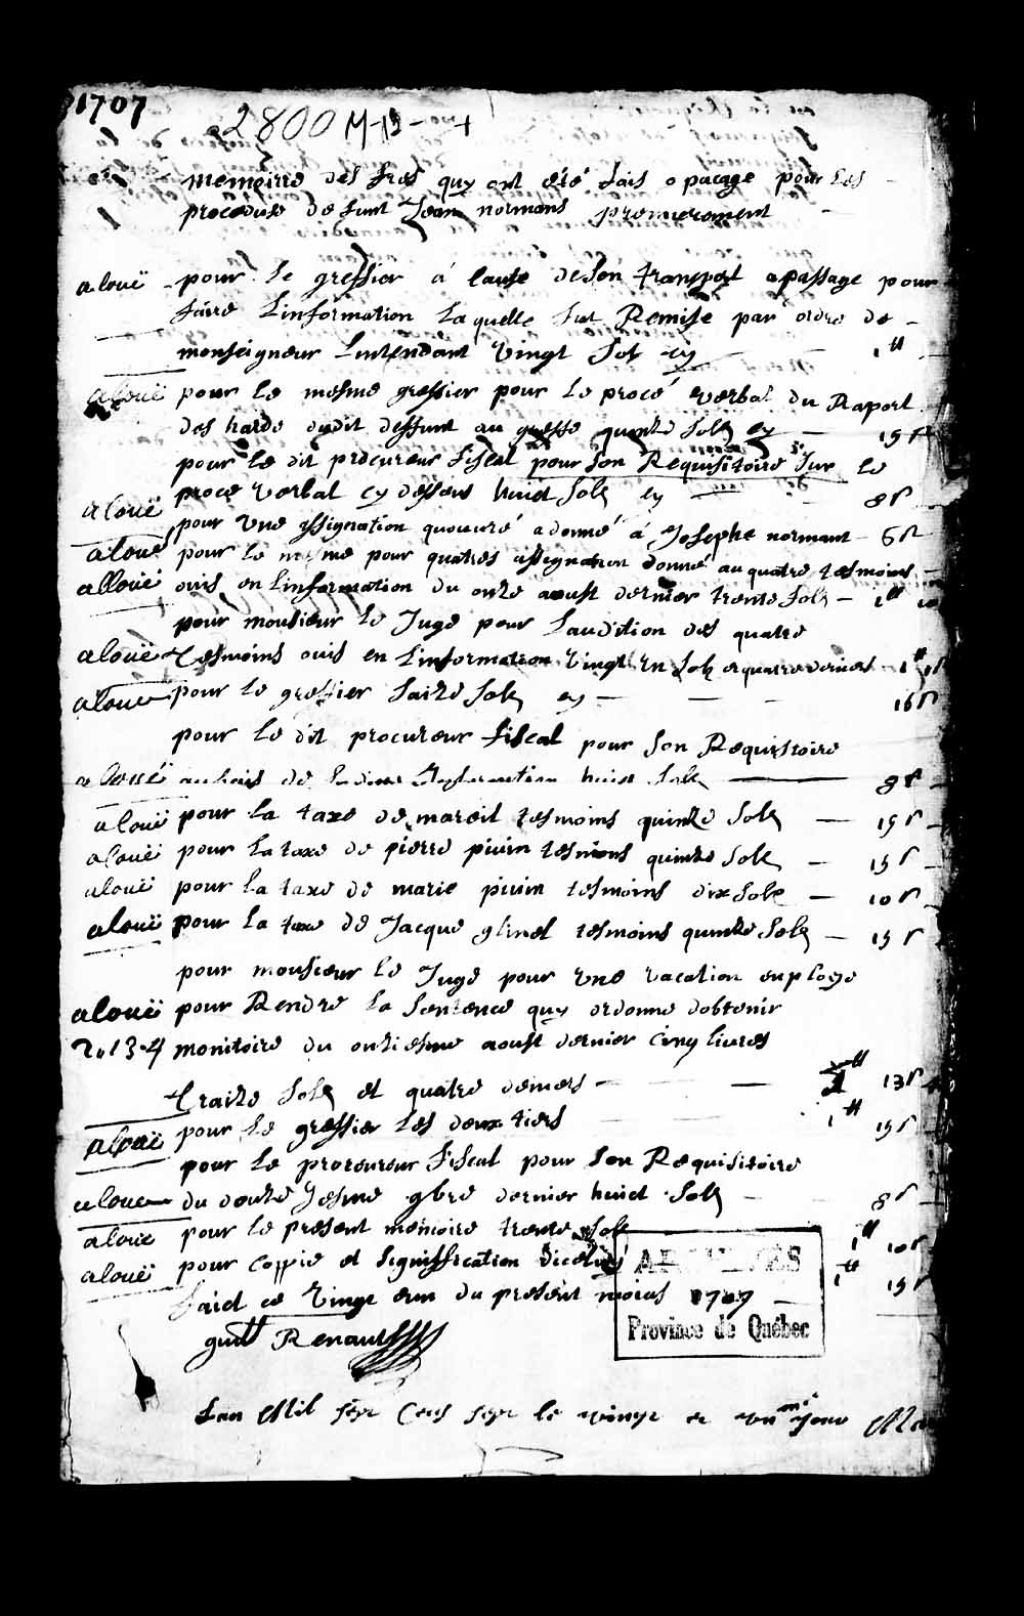 1707
2800 M-12- +
memoirre des fres quy ont eté fais o pacage pour les
procedure defunt Jean normans premierement
aloué pour le greffier á cause deson transport apassage pour
faire Linformation Laquelle fut Remise par ordre de
monseigneur Lintendant vingt sols cy 1#
aloué pour le mesme greffier pour le procé verbal du Raport
des harde dudit deffunt au greffe quinze sols cy 15s
pour le dit procureur fiscal pour son Requisitoire sur le
aloué proce verbal cy dessus huict sols cy 8s
aloué pour une assignation a donné á Josephe normant 6s
alloué pour le mesme pour quatres assignation donné au quatre tesmoins
ouis en Linformation du onze aoust dernier trente sols 1# 10
pour monsieur le Juge pour Laudition des quatre
aloué Tesmoins ouis en Linformation vingt un sols et quatre deniers 1# 1s
aloué pour le greffier saize sols cy 16s
pour le dit procureur fiscal pour son Requisitoire
aloué au bas de Information huict sols 8s
aloué pour la taxe de mareil tesmoins quinze sols 15s
aloué pour la taxe de pierre pivin tesmions quinze sols 15s
aloué pour la taxe de marie pivin tesmoins dix sols 10s
aloué pour la taxe de Jacque glinel tesmoins quinze sols 15s
pour monsieur le Juge pour une vacation employe
aloué pour Rendre la sentence quy ordonne dobtenir
2.13-4 monitoire du onziesme aoust dernier cinq livres
traize sols et quatre deniers 13s
aloué pour le greffier les deux tiers 1# 15s
pour le procureur fiscal pour son Requisitoire
aloué du douze Jesme 9bre dernier huict sols 8s
aloué pour le present memoire trente sols 1# 10s
aloué pour coppie et signiffication diceluy 1# 15s
faict ce vingt eun du present moias 1707
guill Renault
ARCHIVES
Province de Québec
Lan Mil sept Cens sept le vingt et un me Jour